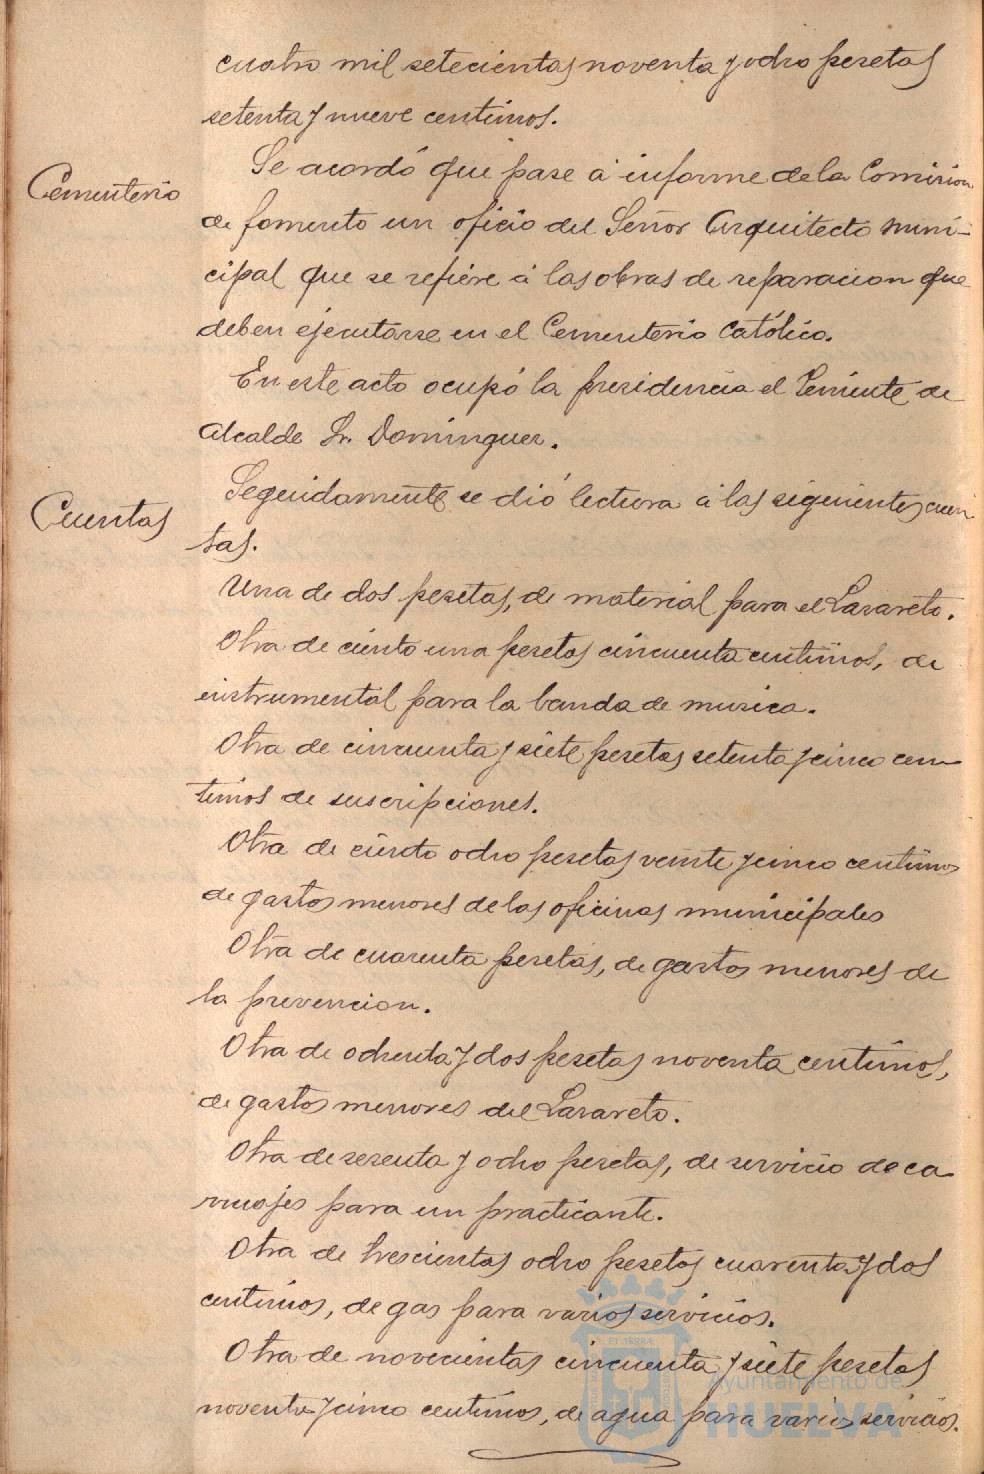 cuatro mil setecientas noventa y ocho pesetas
setenta y nueve centimos.
Cementerio
Se acordó que pase á informe de la Comision
de fomento un oficio del Señor Arquitecto muni-
cipal que se refiere á las obras de reparacion que
deben ejecutarse en el Cementerio Católico.
En este acto ocupó la presidencia el Teniente de
Alcalde Sr. Dominguez.
Cuentas
Seguidamente se dió lectura á las siguientes cuen
tas.
Una de dos pesetas, de material para el Lazareto.
Otra de ciento una pesetas cincuenta centimos, de
instrumental para la banda de musica.
Otra de cincuenta y siete pesetas setenta y cinco cen-
timos de suscripciones.
Otra de ciento ocho pesetas veinte y cinco centimos
de gastos menores de las oficinas municipales
Otra de cuarenta pesetas, de gastos menores de
la prevencion.
Otra de ochenta y dos pesetas noventa centimos,
de gastos menores del Lazareto.
Otra de sesenta y ocho pesetas, de servicio de ca-
rruajes para un practicante.
Otra de trescientas ocho pesetas cuarenta y dos
centimos, de gas para varios servicios.
Otra de novecientas cincuenta y siete pesetas
noventa y cinco centimos, de agua para varios servicios.
Ayuntamiento de
HUELVA